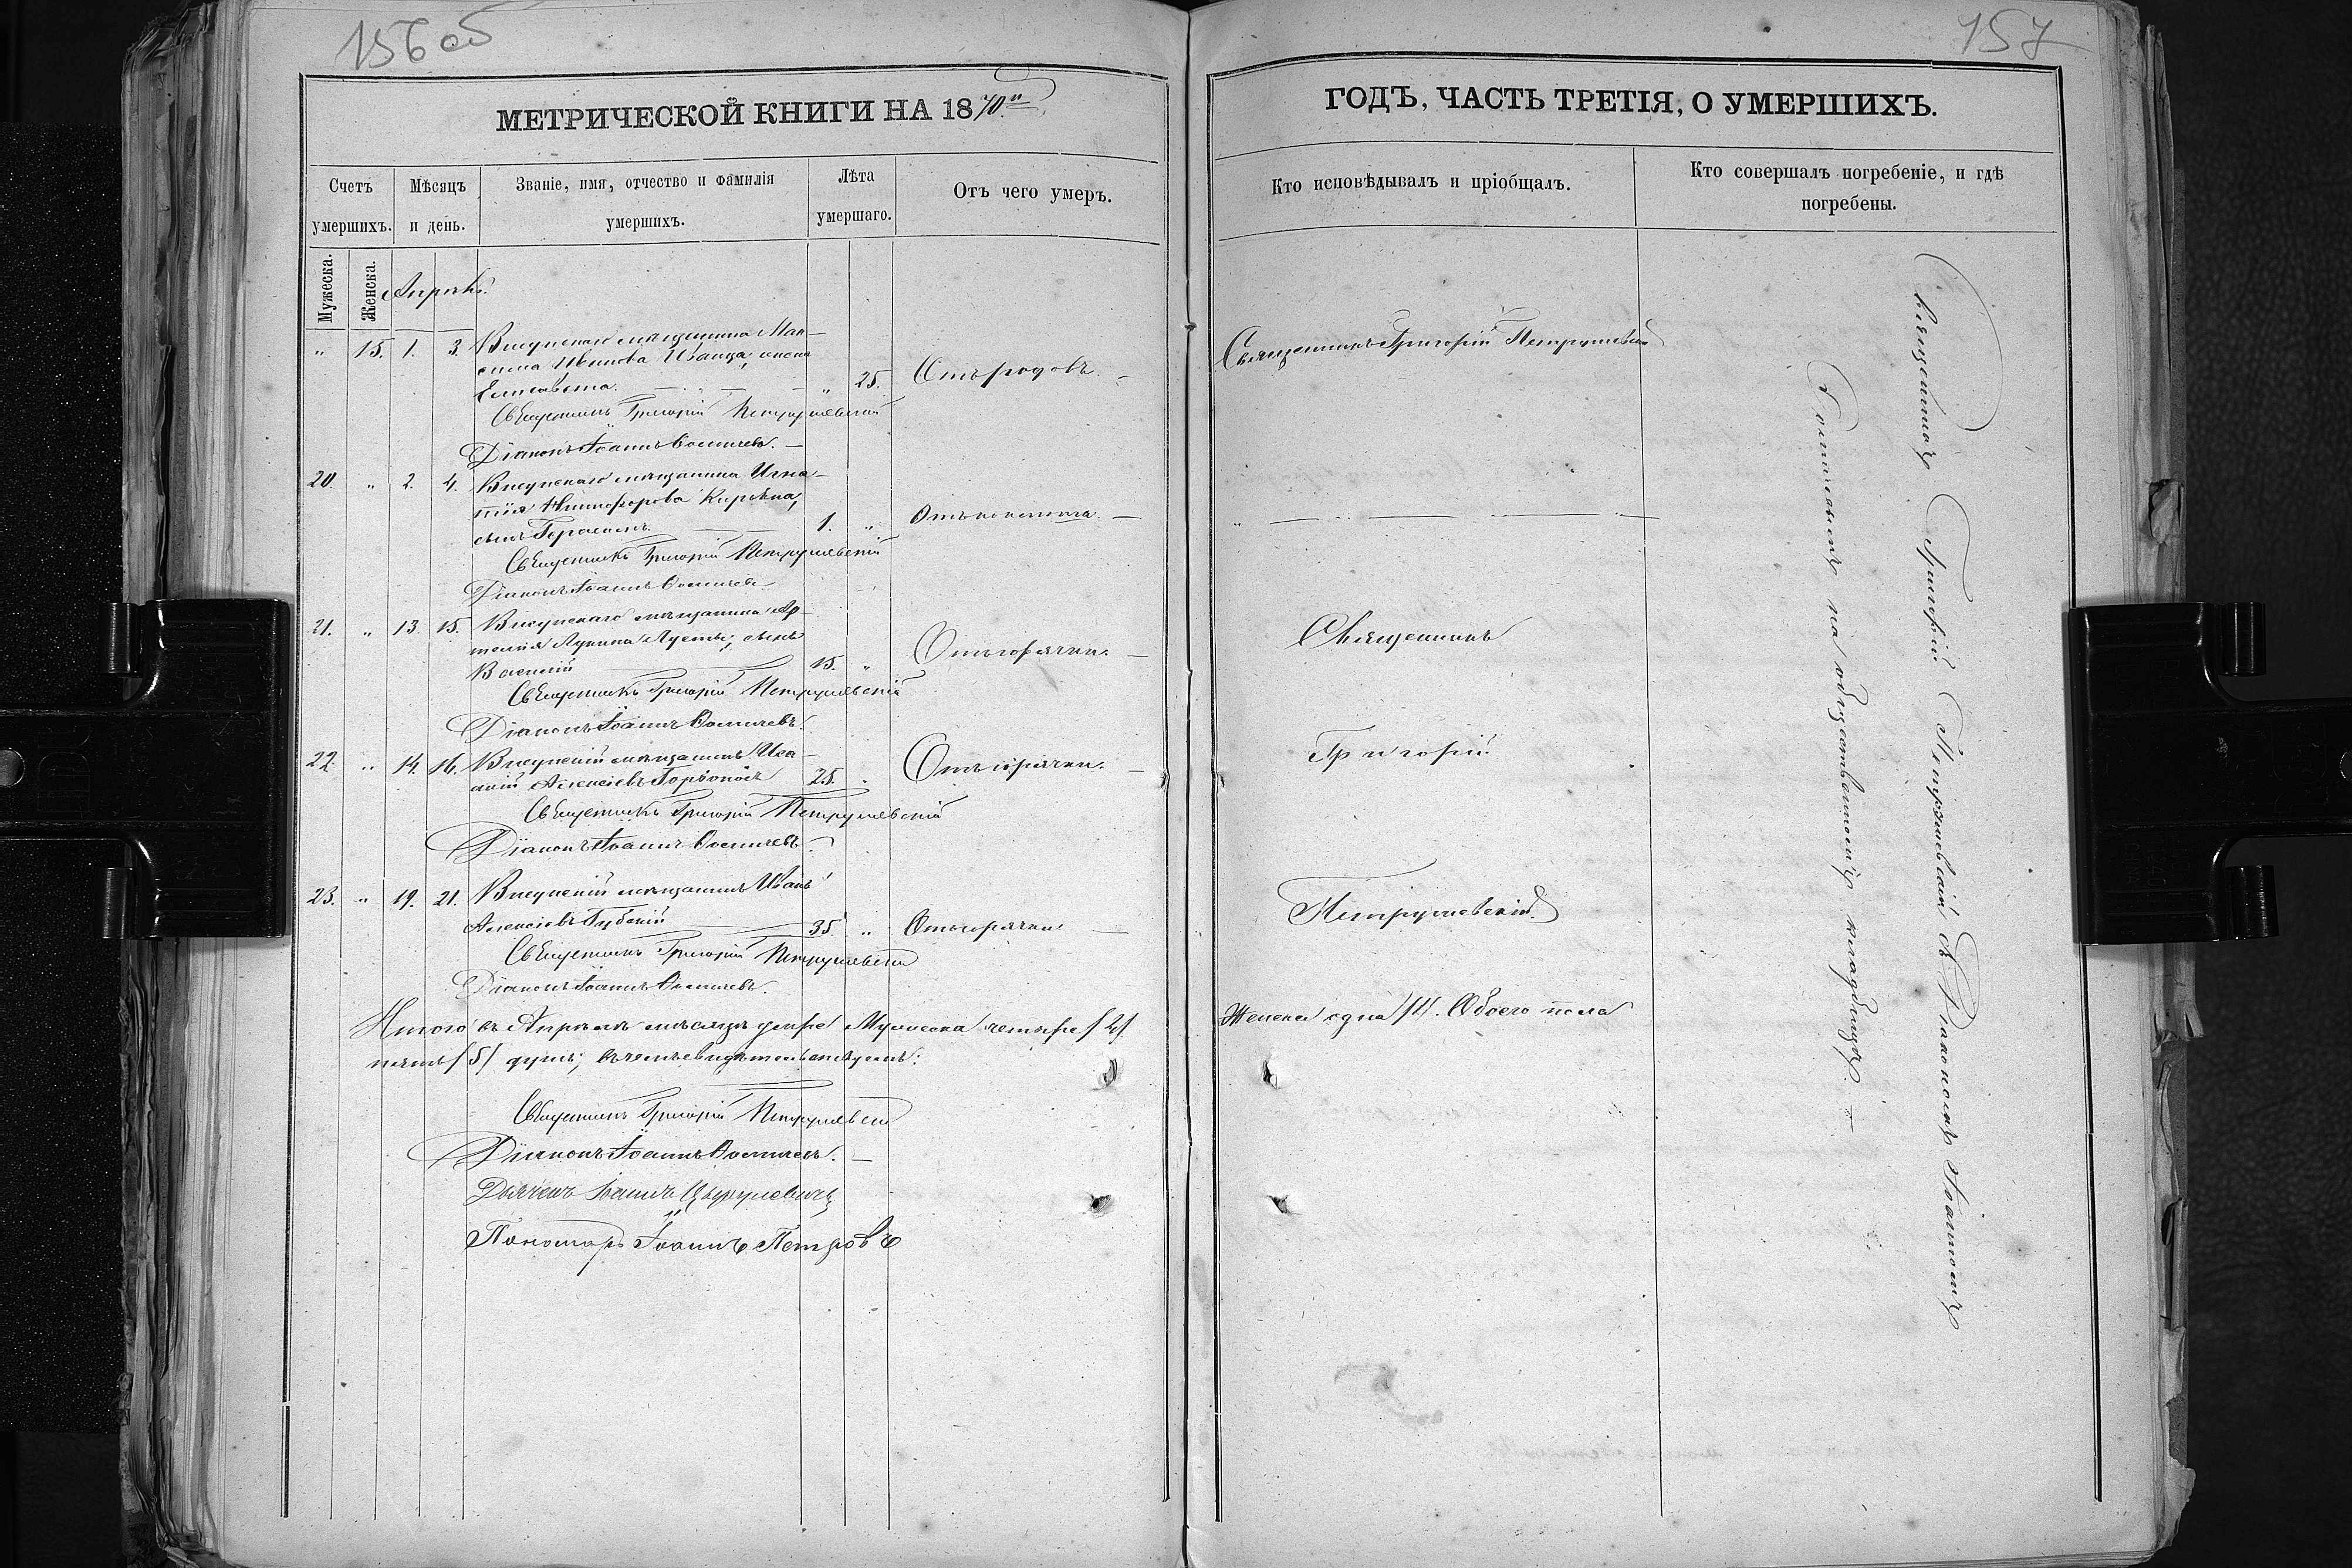 156 об
МЕТРИЧЕСКОЙ КНИГИ НА 1870.й
Счетъ умершихъ.
Мѣсяцъ и день.
Званіе, имя, отчество и фамилія умершихъ.
Лѣта умершаго.
Отъ чего умеръ.
Мужеска.
Женска.
Апрѣль.
" 15. 1. 3. Висунскаго мѣщанина Мак-
сима Иванца, жена
Елисавета. — " 25. Отъ родовъ. —
Священникъ Григорій Петрушевскій
Діаконъ Іоаннъ
20. " 2. 4. Висунскаго мѣщанина Игна-
тія Никифорова
сынъ Герасимъ. — 1. " —
Священникъ Григорій Петрушевскій
Діаконъ Іоаннъ
21. " 13. 15. Висунскаго мѣщанина Ар-
темія сынъ
Василій — 15. " Отъ горячки. —
Священникъ Григорій Петрушевскій
Діаконъ Іоаннъ
22. " 14. 16. Висунскій мѣщанинъ
Алексіевъ 25. " Отъ горячки. —
Священникъ Григорій Петрушевскій
Діаконъ Іоаннъ
23. " 19. 21. Висунскій мѣщанинъ Иванъ
Алексіевъ Губскій — 35. " Отъ горячки —
Священникъ Григорій Петрушевскій
Діаконъ Іоаннъ
Итого въ Апрѣлѣ мѣсяцѣ умре Мужеска четыре /4/
пять /5/ душъ; въ чемъ свидѣтельствуемъ:
Священникъ Григорій Петрушевскій
Діаконъ Іоаннъ
Дьячекъ Іоаннъ
Пономарь Іоаннъ Петровъ
157
ГОДЪ, ЧАСТЬ ТРЕТІЯ, О УМЕРШИХЪ.
Кто исповѣдывалъ и пріобщалъ.
Кто совершалъ погребеніе, и гдѣ погребены.
Священникъ Григорій Петрушевскій
" — — —
Священникъ
Григорій
Петрушевскій
Женска одна /1/. Обоего пола
Священникъ Григорій Петрушевскій съ Діакономъ Іоанномъ
на общественномъ кладбищѣ. —